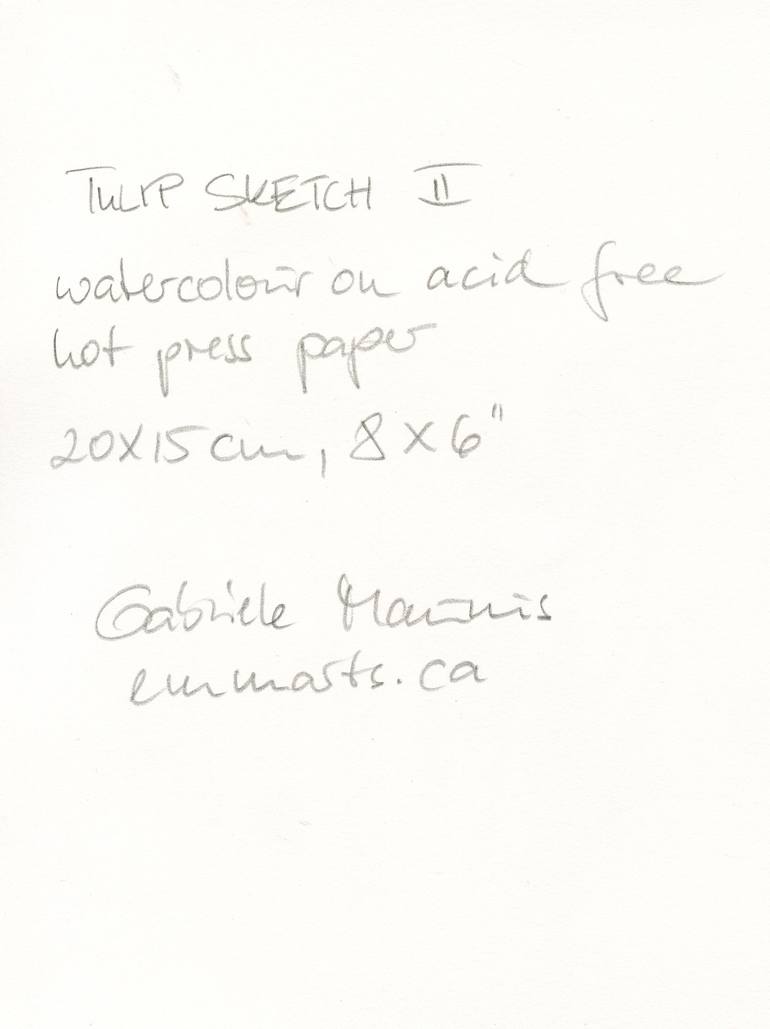 TULIP SKETCH II
watercolour on acid free
hot press paper
20X15cm, 8X6"
Gabriele
emmarts.ca